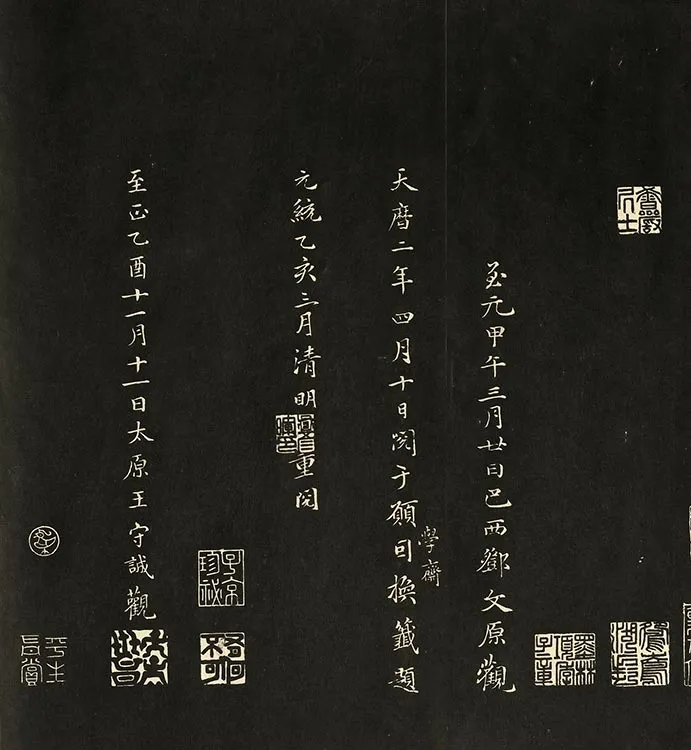 至元甲午三月廿日巴西鄧文原觀
天曆二年四月十日閱于願換籤題
學齋
元統乙亥三月清明重閱
至正乙酉十一月十一日太原王守誠觀
子京珍祕
平生真賞